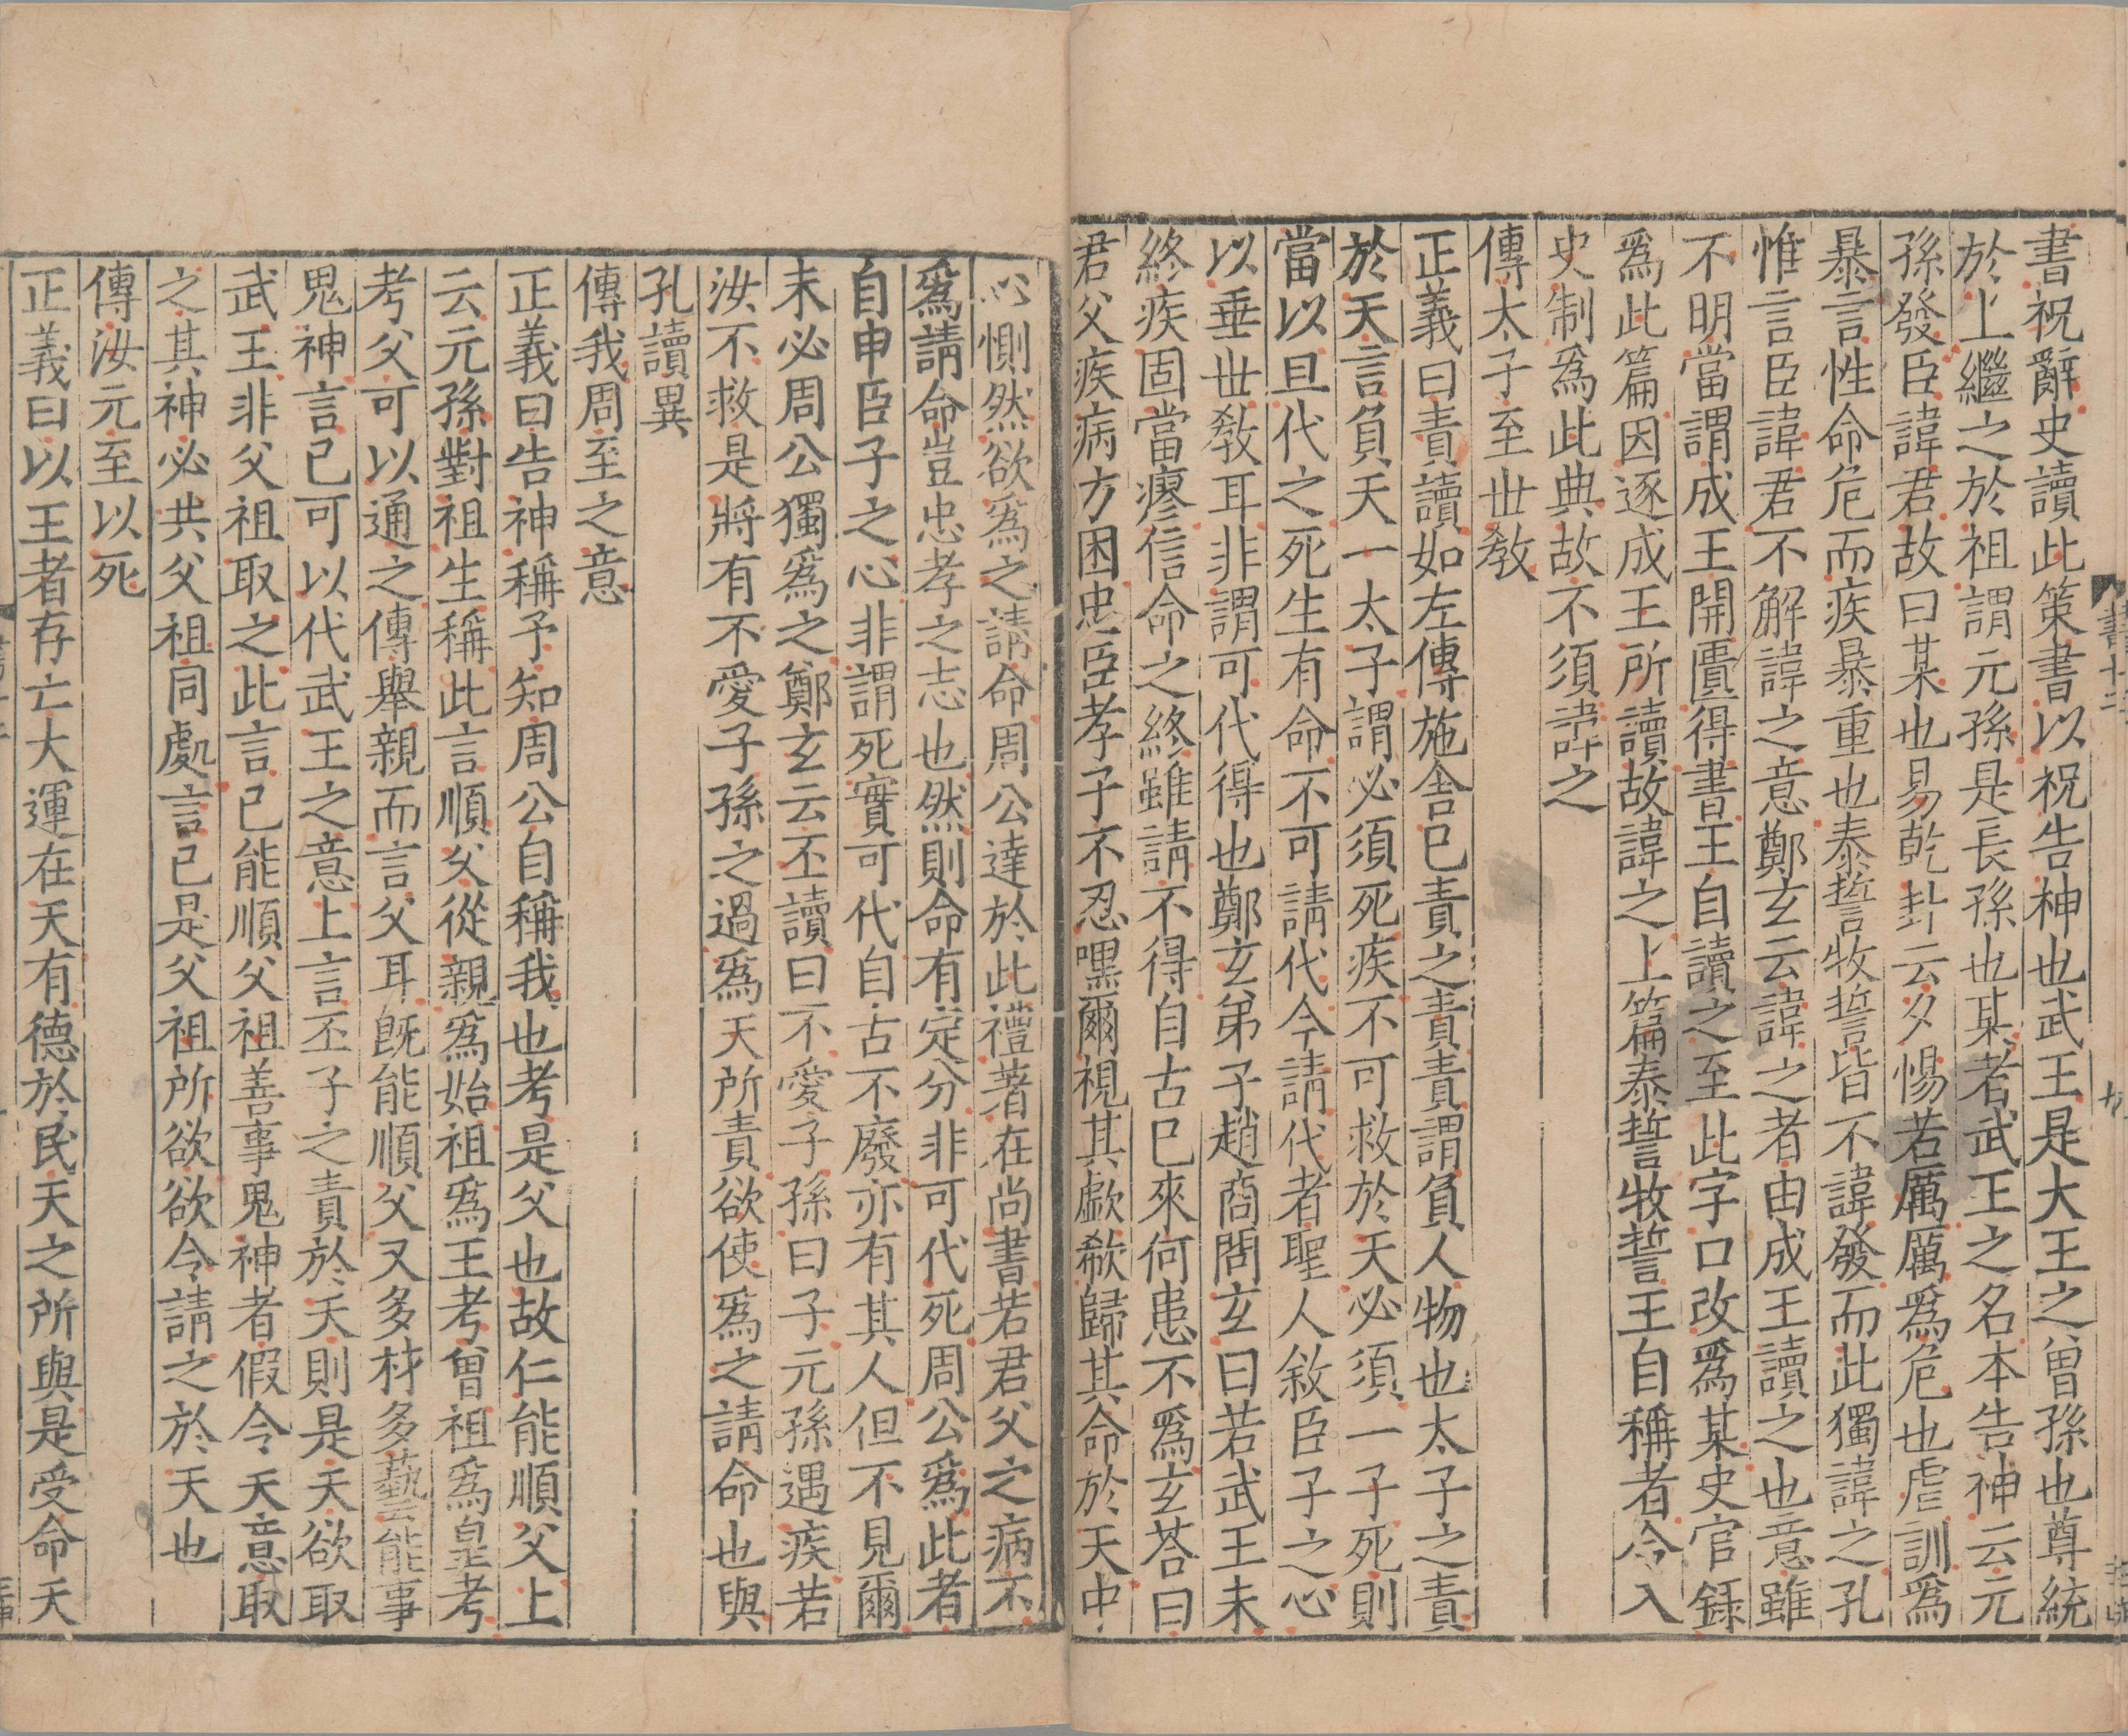 書祝辭史讀此策書以祝告神也武王是大王之曾孫也尊統
於上繼之於祖謂元孫是長孫也某者武王之名本告神云元
孫發臣諱君故曰某也易乾卦云夕惕若厲厲爲危也虐訓爲
暴言性命危而疾暴重也泰誓牧誓皆不諱發而此獨諱之孔
惟言臣諱君不解諱之意鄭玄云諱之者由成王讀之也意雖
不明當謂成王開匱得書王自讀之至此字口改爲某史官録
爲此篇因逐成王所讀故諱之上篇泰誓牧誓王自稱者令入
史制爲此典故不須諱之
傳太子至世敎
正義曰責讀如左傳施舍已責之責責謂負人物也太子之責
於天言負天一太子謂必須死疾不可救於天必須一子死則
當以旦代之死生有命不可請代今請代者聖人敘臣子之心
以垂世敎耳非謂可代得也鄭玄弟子趙商問玄曰若武王未
終疾固當瘳信命之終雖請不得自古已來何患不爲玄荅曰
君父疾病方困忠臣孝子不忍嘿爾視其歔欷歸其命於天中
心惻然欲爲之請命周公達於此禮著在尚書若君父之病不
爲請命豈忠孝之志也然則命有定分非可代死周公爲此者
自申臣子之心非謂死實可代自古不廢亦有其人但不見爾
未必周公獨爲之鄭玄云丕讀曰不愛子孫曰子元孫遇疾若
汝不救是將有不愛子孫之過爲天所責欲使爲之請命也與
孔讀異
傳我周至之意
正義曰告神稱予知周公自稱我也考是父也故仁能順父上
云元孫對祖生稱此言順父從親爲始祖爲王考曾祖爲皇考
考父可以通之傳舉親而言父耳旣能順父又多材多藝能事
鬼神言已可以代武王之意上言丕子之責於天則是天欲取
武王非父祖取之此言已能順父祖善事鬼神者假令天意取
之其神必共父祖同處言已是父祖所欲欲令請之於天也
傳汝元至以死
正義曰以王者存亡大運在天有德於民天之所與是受命天
書十二